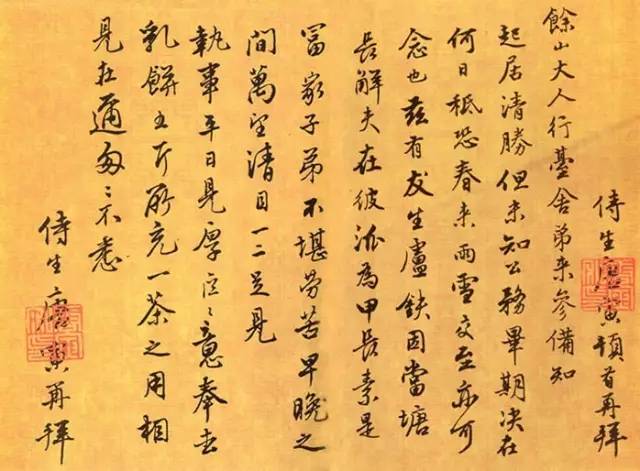 侍生唐寅頓首再拜
餘山大人行臺舍弟來參備知
起居清勝但未知公務畢期决在
何日秪恐春来雨雪交至亦可
念也茲有友生盧鈇因當塘
長解夫在彼派為甲長素是
富家子弟不堪劳苦早晚之
間萬望清目一二足見
執事平日見厚區〻意奉去
乳餅五斤所充一茶之用相
見在邇匆〻不悉
侍生唐寅再拜